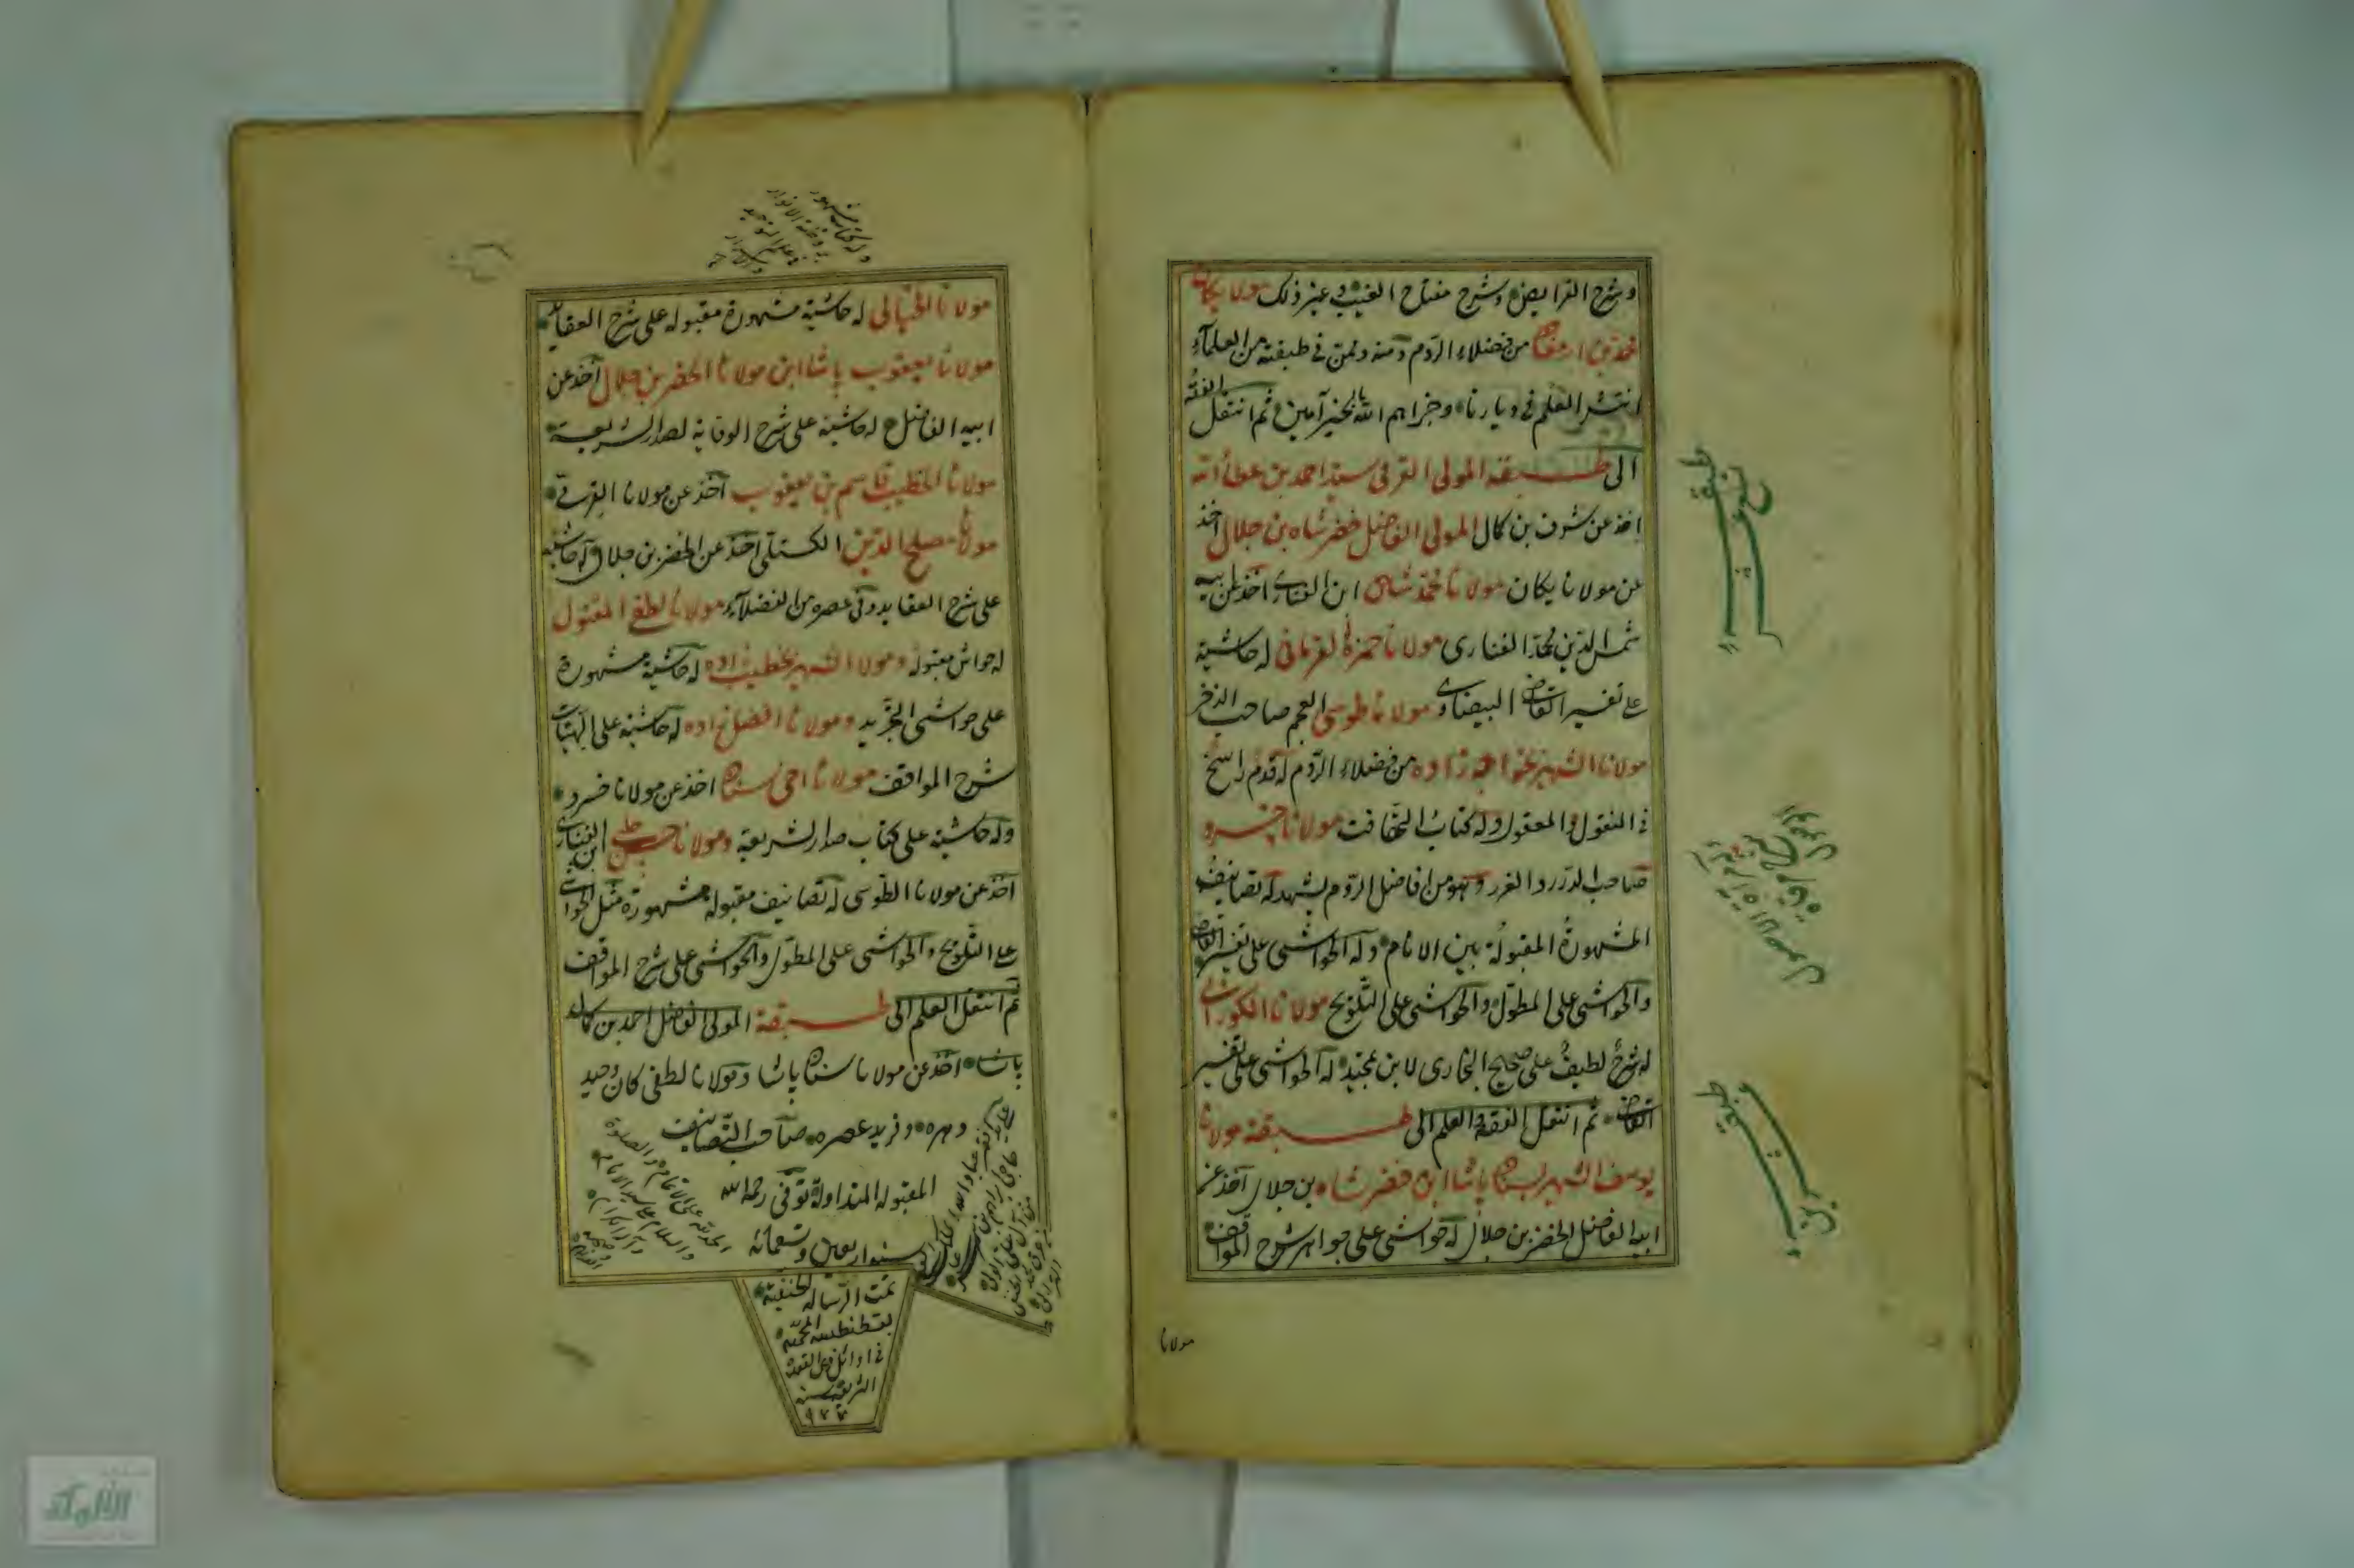 وشرح الفرايض وشرح مفتاح الغيب وغير ذلك مولانا يكان
محمد بن ارمغان من فضلاء الروم ومنه وممن في طبقته من العلماء
انتشر العلم في ديارنا وجزاهم الله بالخير آمين ثم انتقل الفقه
الى طبقة المولى القرقي سيد احمد بن عطاء الله
اخذ عن شرف بن كمال المولى الفاضل خضر شاه بن جلال اخذ
عن مولانا يكان مولانا محمد شاه ابن الفناري اخذ عن ابيه
شمس الدين محمد الفناري مولانا حمزة القرماني له حاشية
على تفسير القاضي البيضاوي مولانا طوسي العجم صاحب الذخر
مولانا الشهير بخواجه زاده من فضلاء الروم له قدم راسخ
في المنقول والمعقول وله كتاب التهافت مولانا خسرو
صاحب الدرر والغرر وهو من افاضل الروم يشهد له تصانيفه
المشهورة المقبولة بين الانام وله الحواشي على تفسير القاضي
والحواشي على المطول والحواشي على التلويح مولانا الكوراني
له شرح لطيف على صحيح البخاري لابن تمجيد له الحواشي على تفسير
القاضي ثم انتقل الفقه والعلم الى طبقة مولانا
يوسف الشهير بسنان باشا ابن خضر شاه بن جلال آخذ عن
ابيه الفاضل الخضر بن جلال له حواشي على جواهر شرح المواقف
مولانا
مولانا الخيالي له حاشية مشهورة مقبوله على شرح العقايد
مولانا يعقوب باشا ابن مولانا الخضر بن جلال آخذ عن
ابيه الفاضل له حاشية على شرح الوقاية لصدر الشريعة
مولانا الخطيب قاسم بن يعقوب آخذ عن مولانا القرقي
مولانا مصلح الدين الكستلي اخذ عن الخضر بن جلال وله حاشية
على شرح العقايد وفي عصره من الفضلاء مولانا لطفي المقتول
له حواش مقبولة ومولانا الشهير بخطيب زاده له حاشية مشهورة
على حواشي التجريد ومولانا افضل زاده له حاشية على الهيات
شرح المواقف مولانا اخي سنان اخذ عن مولانا خسرو
وله حاشية على كتاب صدر الشريعة ومولانا حسن چلبي ابن الفناري
آخذ عن مولانا الطوسي له تصانيف مقبوله مشهورة مثل الحواشي
على التلويح والحواشي على المطول والحواشي على شرح المواقف
ثم انتقل العلم الى طبقة المولى الفاضل احمد بن كمال
باشا اخذ عن مولانا سنان باشا ومولانا لطفي كان وحيد
دهره وفريد عصره صاحب التصانيف
المقبوله المتداولة توفي رحمه الله
سنه اربعين وتسعمائه
الحمد لله على الاتمام والصلوة
والسلام على سيد الانام
وآله الكرام
تمت الرساله الحنفية
بقسطنطنيه المحميه
في اوائل ذي القعدة
الشريفه سنه